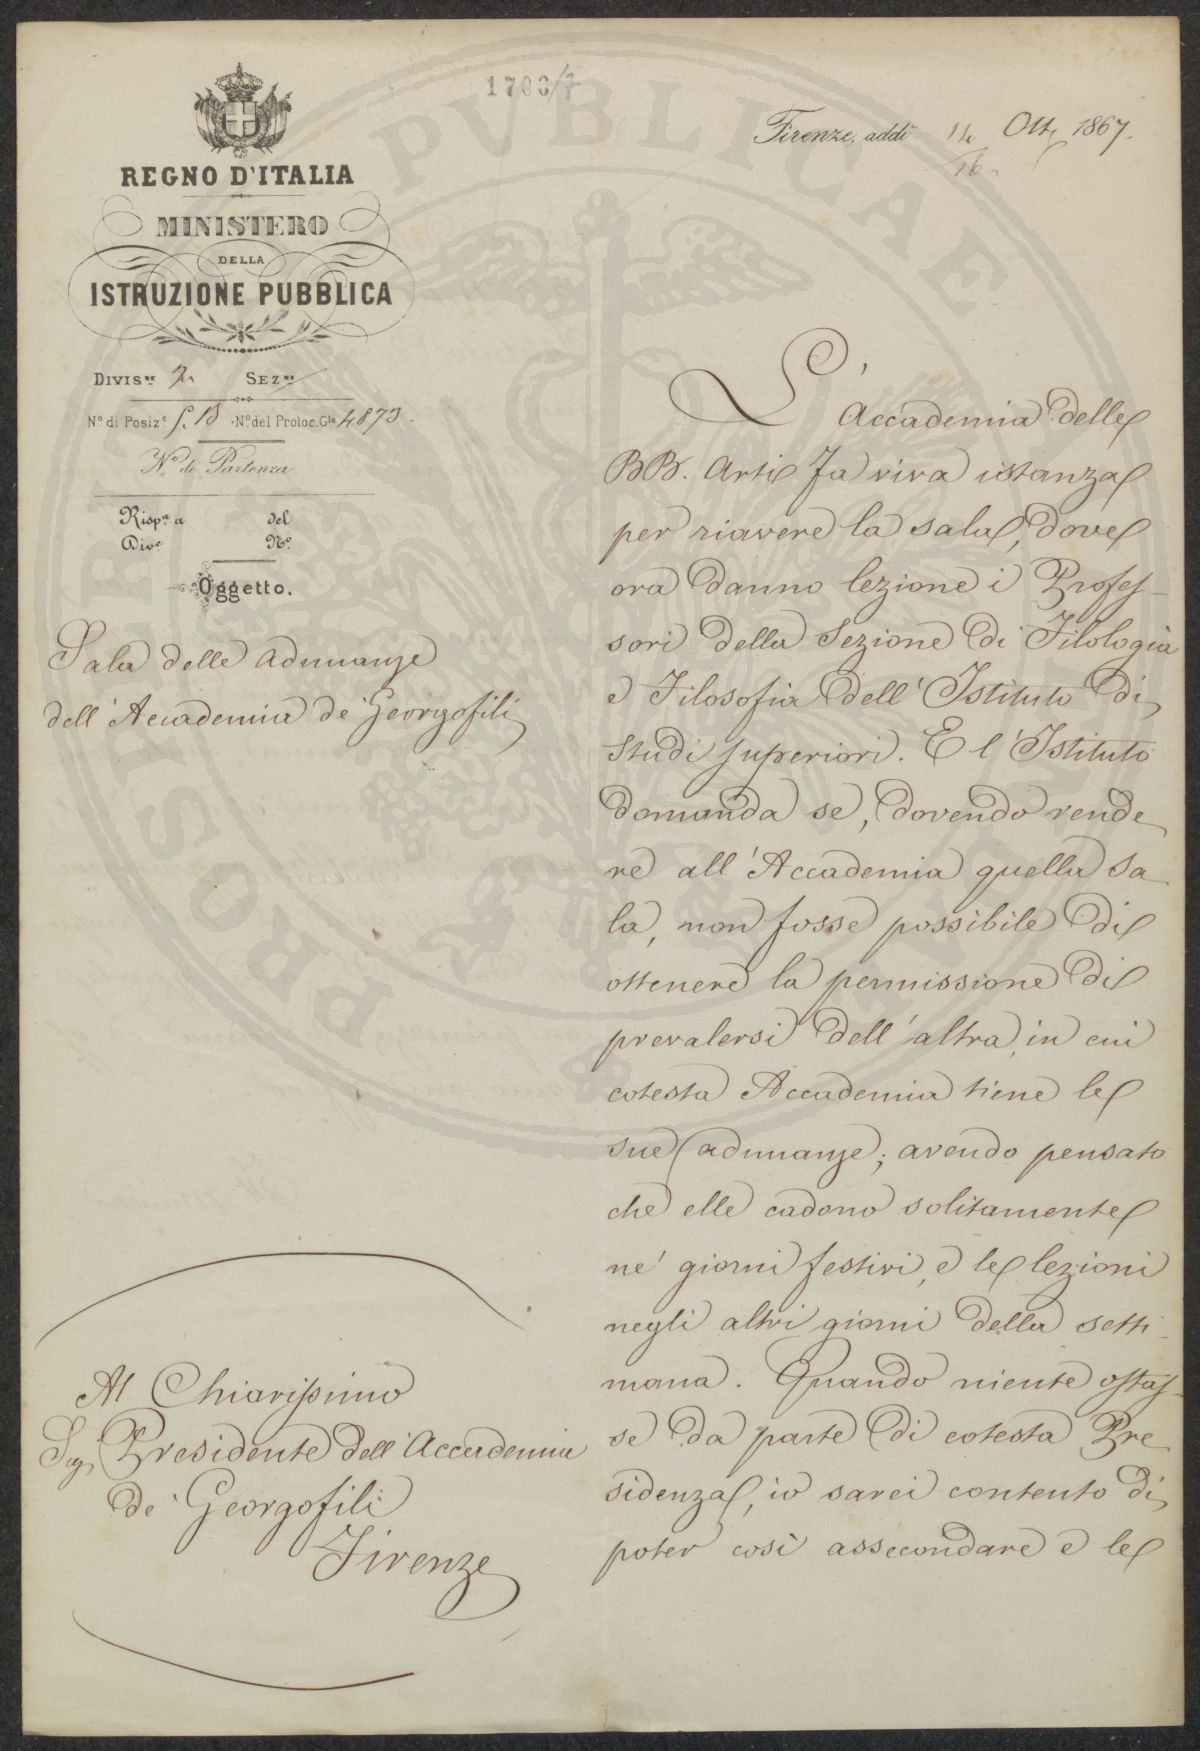 1706/7
Firenze, addì 14 Ott.e 1867.
16
REGNO D'ITALIA
MINISTERO
DELLA
ISTRUZIONE PUBBLICA
DIVIS.ne 2a SEZ.ne
N.o di Posiz.e 5. B N.o del Protoc. G.le 4873.
N.o di Partenza
Risp.ta a del
Div.e N.o
Oggetto.
Sala delle adunanze
dell'Accademia de' Georgofili
L'Accademia delle
BB. Arti fa viva istanza
per riavere la sala, dove
ora danno lezione i Profes-
sori della Sezione di Filologia
e Filosofia dell'Istituto di
Studi superiori. E l'Istituto
domanda se, dovendo rende
re all'Accademia quella sa
la, non fosse possibile di
ottenere la permissione di
prevalersi dell'altra, in cui
cotesta Accademia tiene le
sue adunanze; avendo pensato
che elle cadono solitamente
ne' giorni festivi, e le lezioni
negli altri giorni della setti-
mana. Quando niente ostas-
se da parte di cotesta Pre
sidenza, io sarei contento di
poter così assecondare e le
Al Chiarissimo
Sig. Presidente dell'Accademia
de' Georgofili
Firenze
PVBLICAE
PROSPERITATI